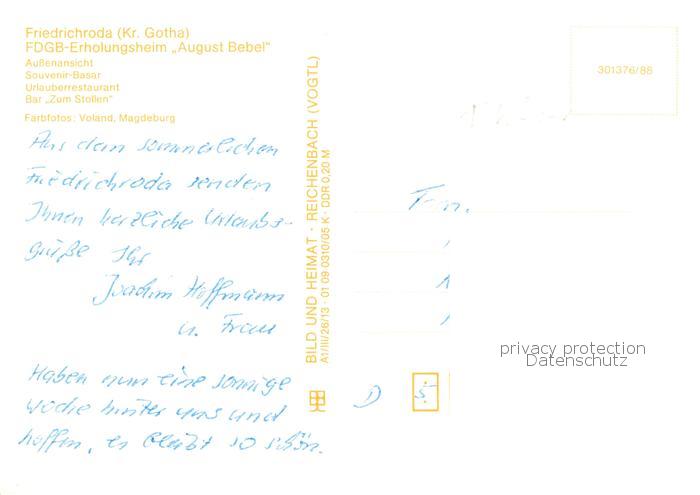 Friedrichroda (Kr. Gotha)
FDGB-Erholungsheim „August Bebel"
Außenansicht
Souvenir-Basar
Urlauberrestaurant
Bar „Zum Stollen"
Farbfotos: Voland, Magdeburg
Aus dem sommerlichen
Friedrichroda senden
Ihnen herzliche Urlaubs-
grüße Ihr
Joachim Hoffmann
u. Frau
Haben nun eine sonnige
Woche hinter uns und
hoffen, es bleibt so schön.
BILD UND HEIMAT · REICHENBACH (VOGTL)
A1/III/26/13 · 01 09 0310/05 K · DDR 0,20 M
301376/88
Fam.
D 5
privacy protection
Datenschutz